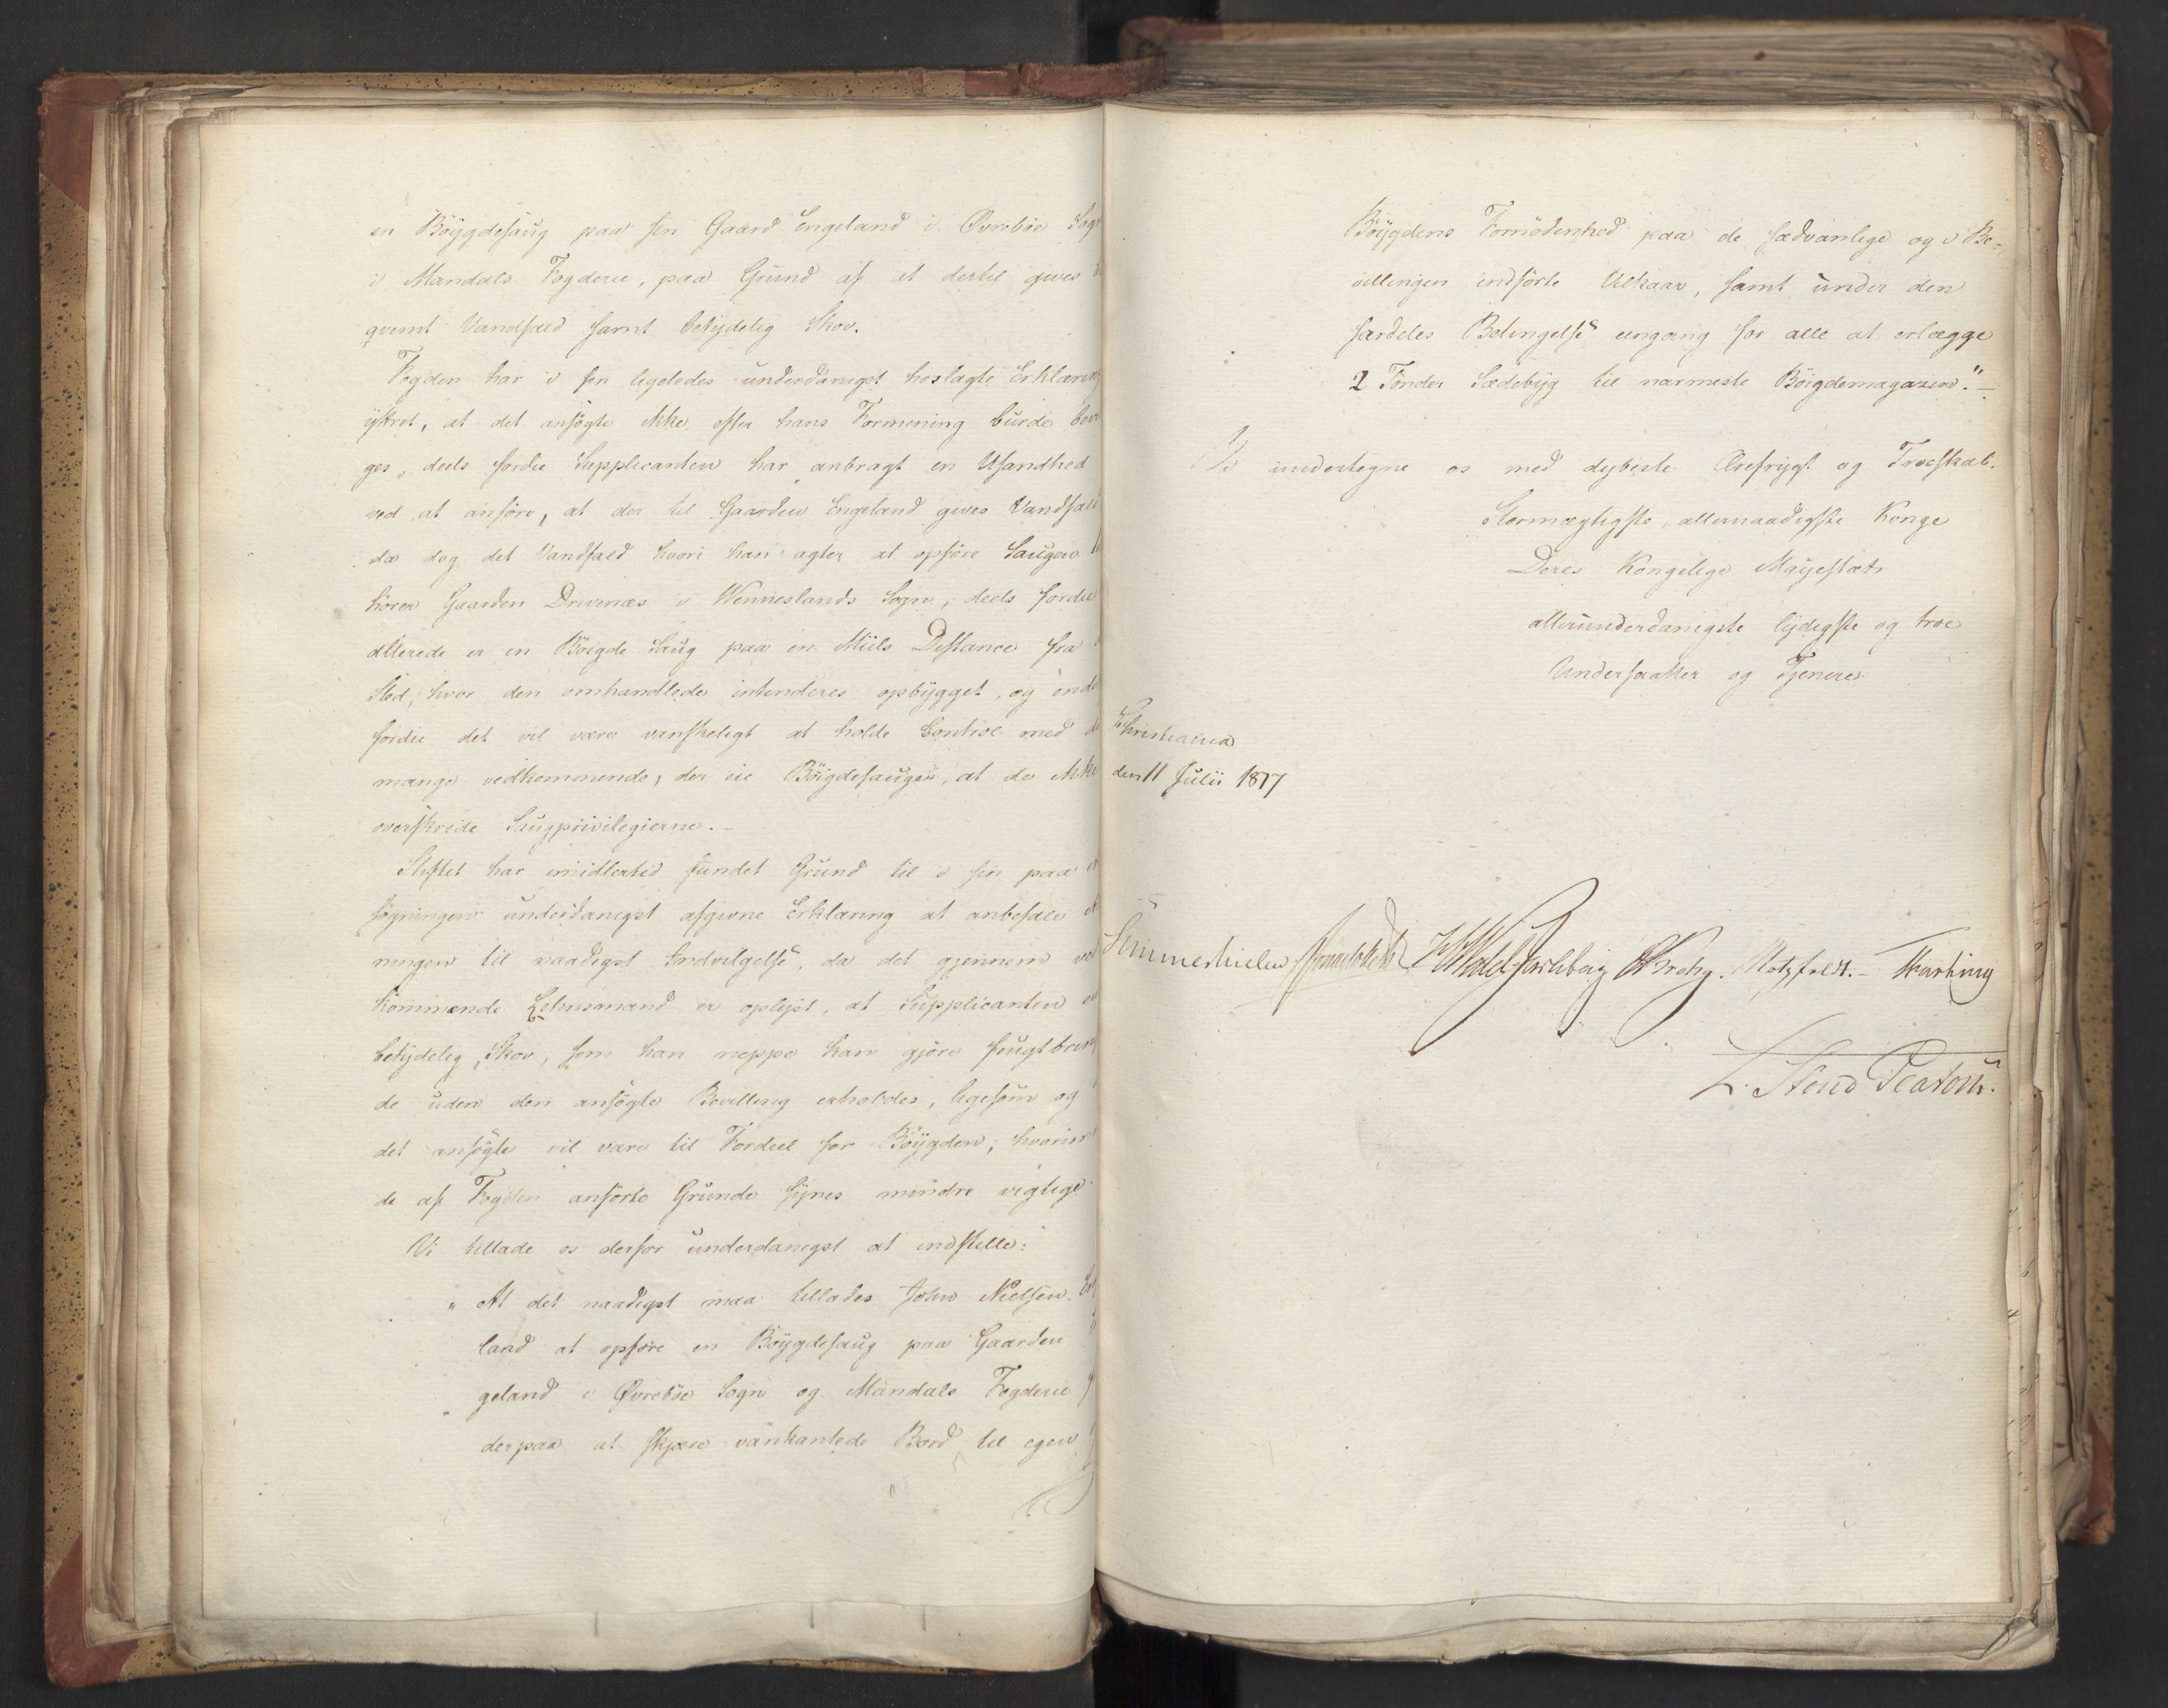 en Böygdesaug paa sin Gaard Engeland i Øvrebøe Sog
i Mandals Fogderie, paa Grund af at dertil gives
qvemt Vandfald samt betydelig Skov.
Fogden har i sin ligeledes underdanigst hoslagte Erklæring
yttret, at det ansøgte ikke efter hans Formening burde bevi
ges, deels fordie Supplicanten har anbragt en Usandhed
ved at anføre, at der til Gaarden Engeland gives Vandfald
da dog det Vandfald hvori han agter at opføre Saugen
hører Gaarden Drivenæs i Wenneslands Sogn, deels fordie
allerede er en Böigde Saug paa en Miils Distance fra
Sted, hvor den omhandlede intenderes opbygget, og ende
fordie det vil være vanskeligt at holde Control med de
mange vedkommende, der eie Böigdesauger, at de ikke
overskride Saugprivilegierne.-
Stiftet har imidlertid fundet Grund til i sin paa
søgningen underdanigst afgivne Erklæring at anbefale
ningen til naadigst Indvilgelse, da det gjennem ved
kommende Lehnsmand er oplyst, at Supplicanten
betydelig Skov, som han neppe kan gjøre frugtbring
de uden den ansøgte Bevilling erholdes, ligesom og
det ansøgte vil være til Fordeel for Böygden; hvorim
de af Fogden anførte Grunde synes mindre vigtige
Vi tillade os derfor underdanigst at indstille:
„ At det naadigst maa tillades John Nielsen En
land at opføre en Böygdesaug paa Gaarden
geland i Øvrebøe Sogn og Mandals Fogderie
derpaa at skjære vankantede Bord til egen
Böygdens Fornødenhed paa de sædvanlige og i Be-
villingen indførte Vilkaar, samt under den
særdeles Betingelse eengang for alle at erlægge
2 Tønder Sædebyg til nærmeste Böigdemagazin."-
Vi undertegne os med dybeste Ærefrygt og Troeskab.
Stormægtigste, allernaadigste Konge
Deres Kongelige Majestæts
allerunderdanigste lydigste og troe
Undersaatter og Tjenere.
Christiania
den 11 Julii 1817
Sommerhielm HWedelJarlsberg CKrohg. Motzfeldt.- Fasting
L. Stoud Platou.